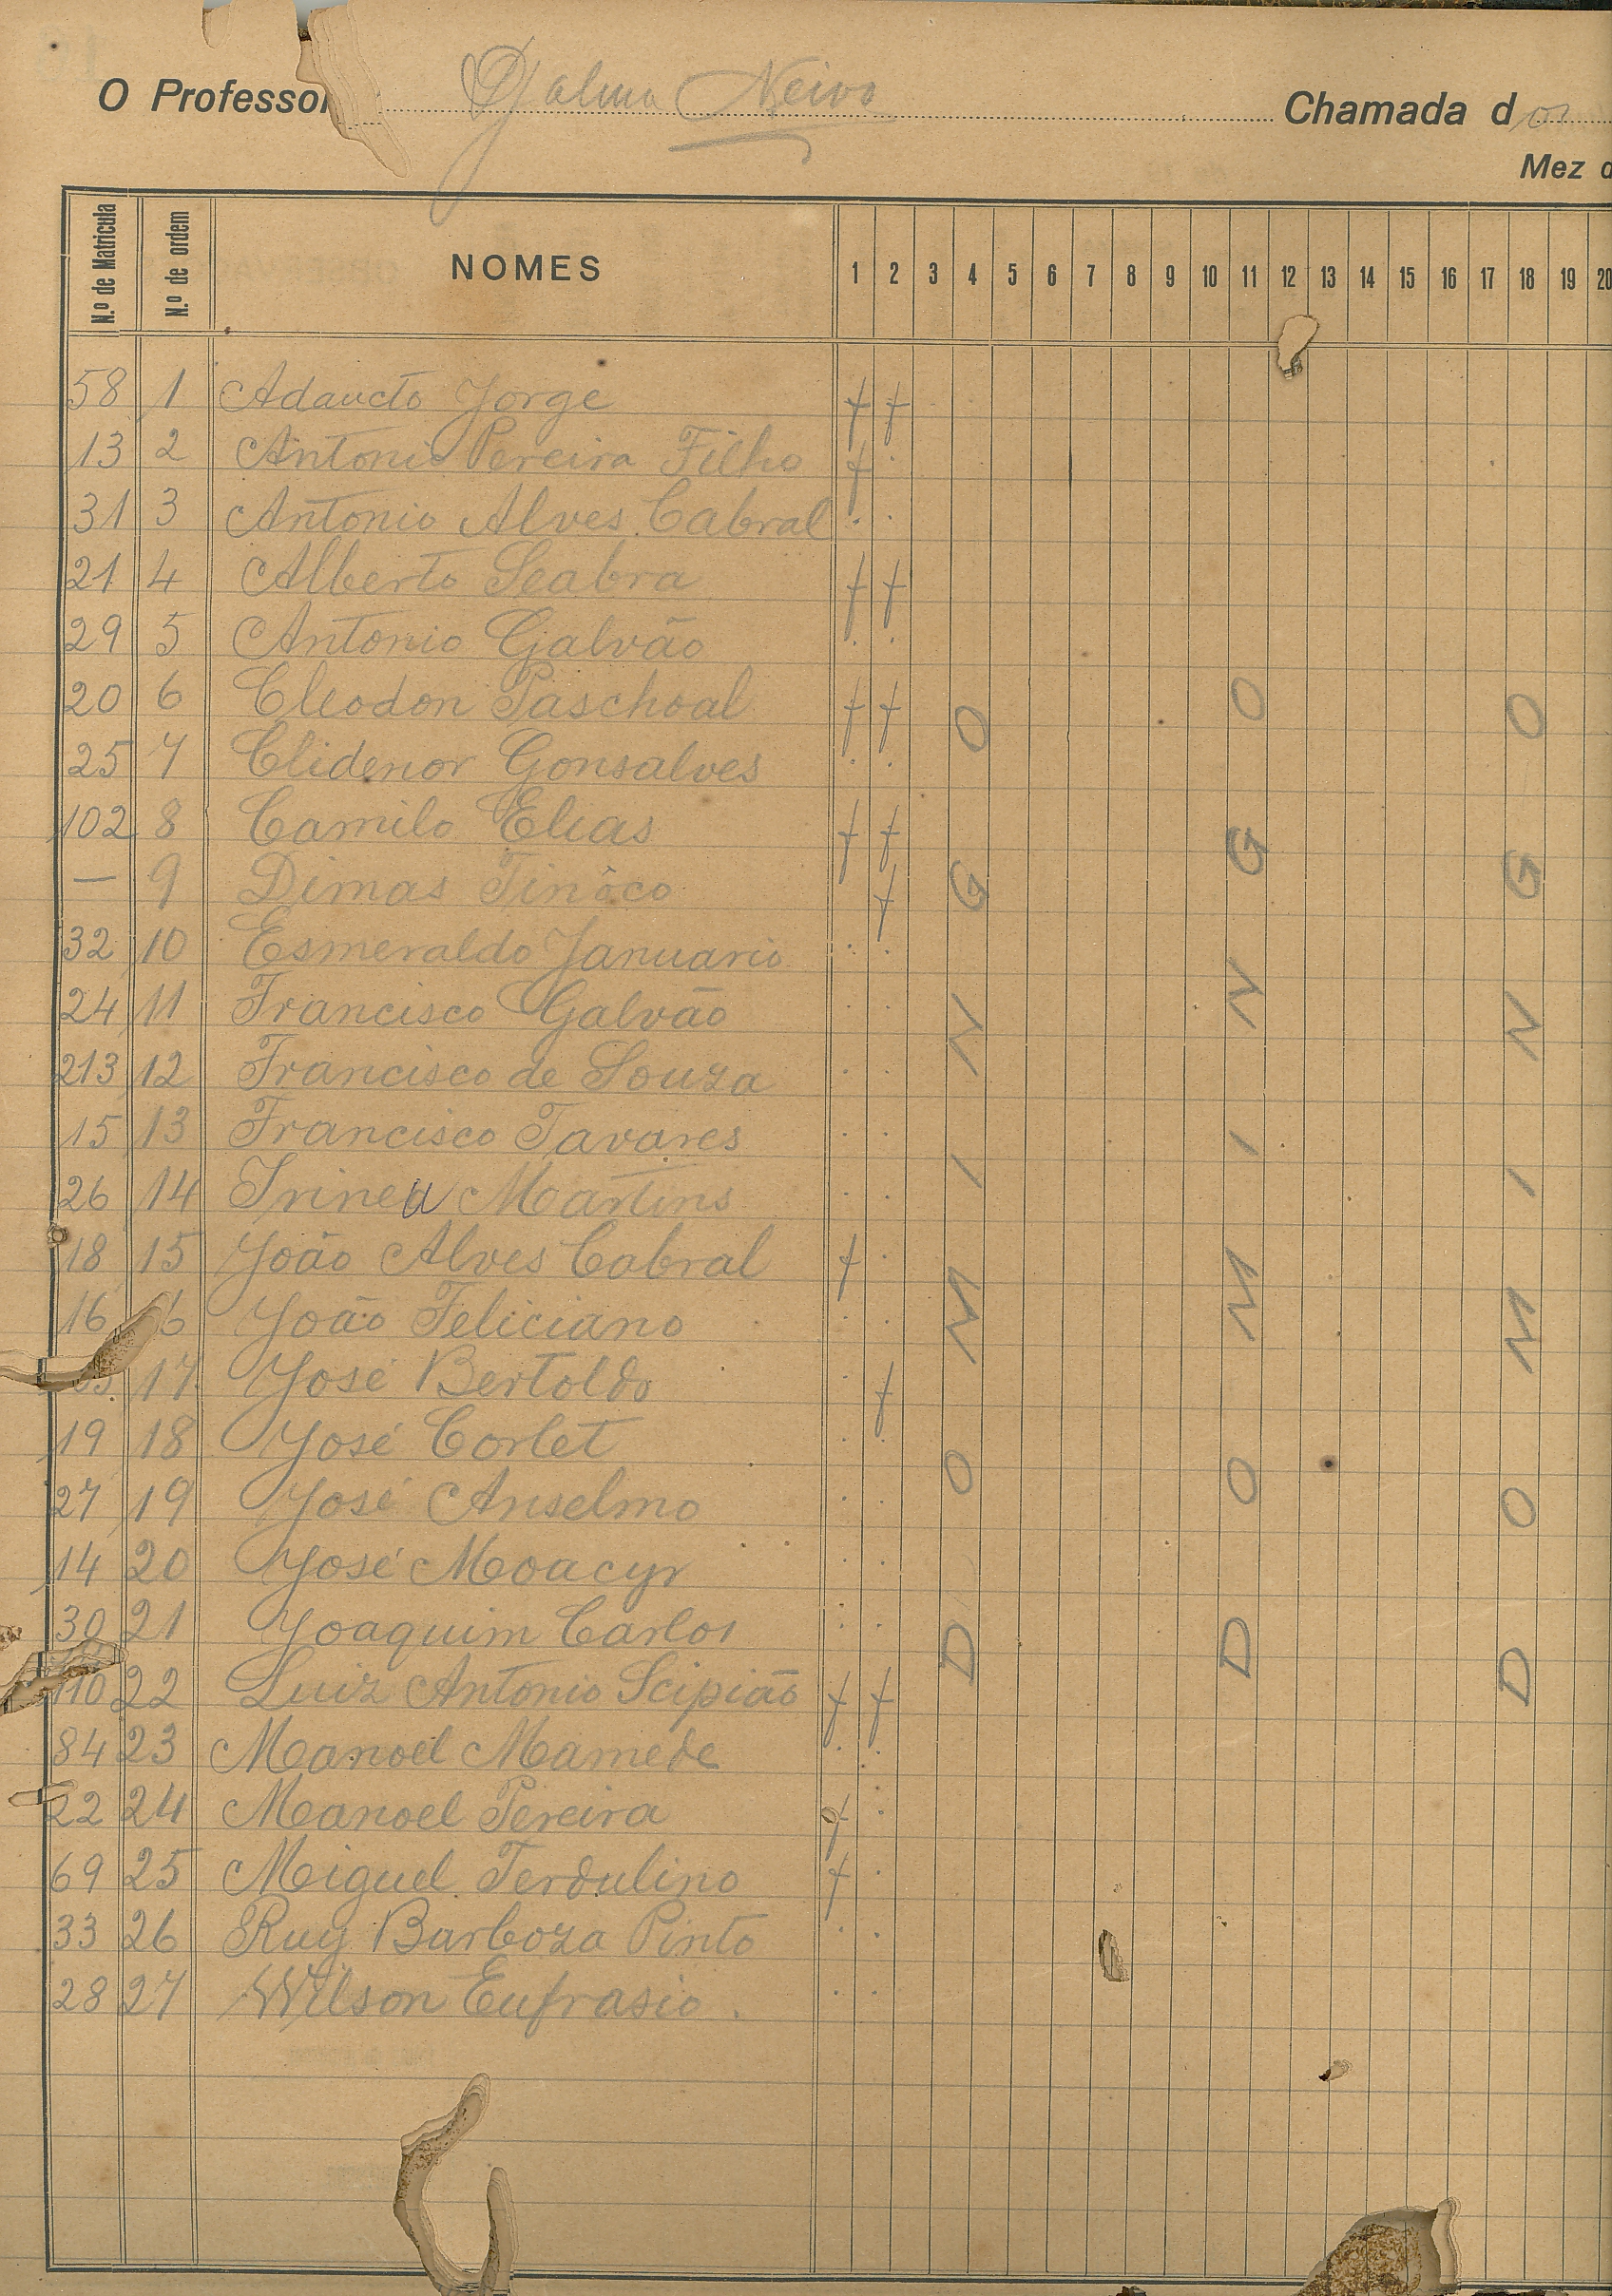 O Professor Djalma Neiva Chamada dos
Mez d
N.º de Matricula N.º de ordem NOMES 1 2 3 4 5 6 7 8 9 10 11 12 13 14 15 16 17 18 19 20
58 1 Adaucto Jorge † †
13 2 Antonio Pereira Filho † .
31 3 Antonio Alves Cabral . .
21 4 Alberto Seabra † †
29 5 Antonio Galvão . .
20 6 Cleodon Paschoal † †
25 7 Clidenor Gonsalves . .
102 8 Camilo Elias † †
— 9 Dimas Tinôco †
32 10 Esmeraldo Januario . .
24 11 Francisco Galvão . .
213 12 Francisco de Souza . .
15 13 Francisco Tavares . .
26 14 Irineu Martins . .
18 15 João Alves Cabral † .
16 6 João Feliciano . .
17 José Bertoldo . †
19 18 José Corlet . .
27 19 José Anselmo . .
14 20 José Moacyr . .
30 21 Joaquim Carlos . .
110 22 Luiz Antonio Scipião † †
84 23 Manoel Mamede . .
22 24 Manoel Pereira † .
69 25 Miguel Terdulino † .
33 26 Ruy Barboza Pinto . .
28 27 Wilson Eufrasio . . .
DOMINGO
DOMINGO
DOMINGO